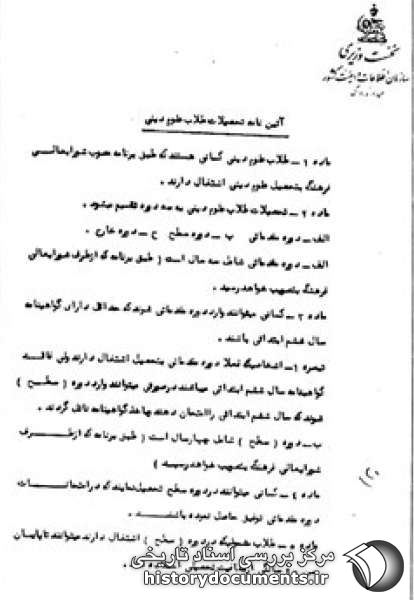 نخست وزیری
سازمان اطلاعات و امنیت کشور
آئین نامه تحصیلات طلاب علوم دینی
ماده ۱ ـ طلاب علوم دینی کسانی هستند که طبق برنامه مصوب شورایعالی
فرهنگ بتحصیل علوم دینی اشتغال دارند .
ماده ۲ ـ تحصیلات طلاب علوم دینی به سه دوره تقسیم میشود .
الف ـ دوره مقدماتی ب ـ دوره سطح ج ـ دوره خارج .
الف ـ دوره مقدماتی شامل سه سال است ( طبق برنامه که ازطرف شورایعالی
فرهنگ بتصویب خواهد رسید .
ماده ۳ ـ کسانی میتوانند وارد دوره مقدماتی شوند که حداقل دارای گواهینامه
سال ششم ابتدائی باشند .
تبصره ۱ ـ اشخاصیکه فعلا دوره مقدماتی بتحصیل اشتغال دارند ولی فاقد
گواهینامه سال ششم ابتدائی میباشند درصورتی میتوانند وارد دوره ( سطح )
شوند که سال ششم ابتدائی را امتحان دهند و باخذ گواهینامه نائل گردند .
ب ـ دوره ( سطح ) شامل چهارسال است ( طبق برنامه که ازطرف
شورایعالی فرهنگ بتصویب خواهد رسید )
ماده ۴ ـ کسانی میتوانند در دوره سطح تحصیل نمایند که در امتحانات
دوره مقدماتی توفیق حاصل نموده باشند .
ماده ۵ ـ طلاب دوره ( سطح ) اشتغال دارند میتوانند تاپایان
مرکز بررسی اسناد تاریخی
historydocuments.ir